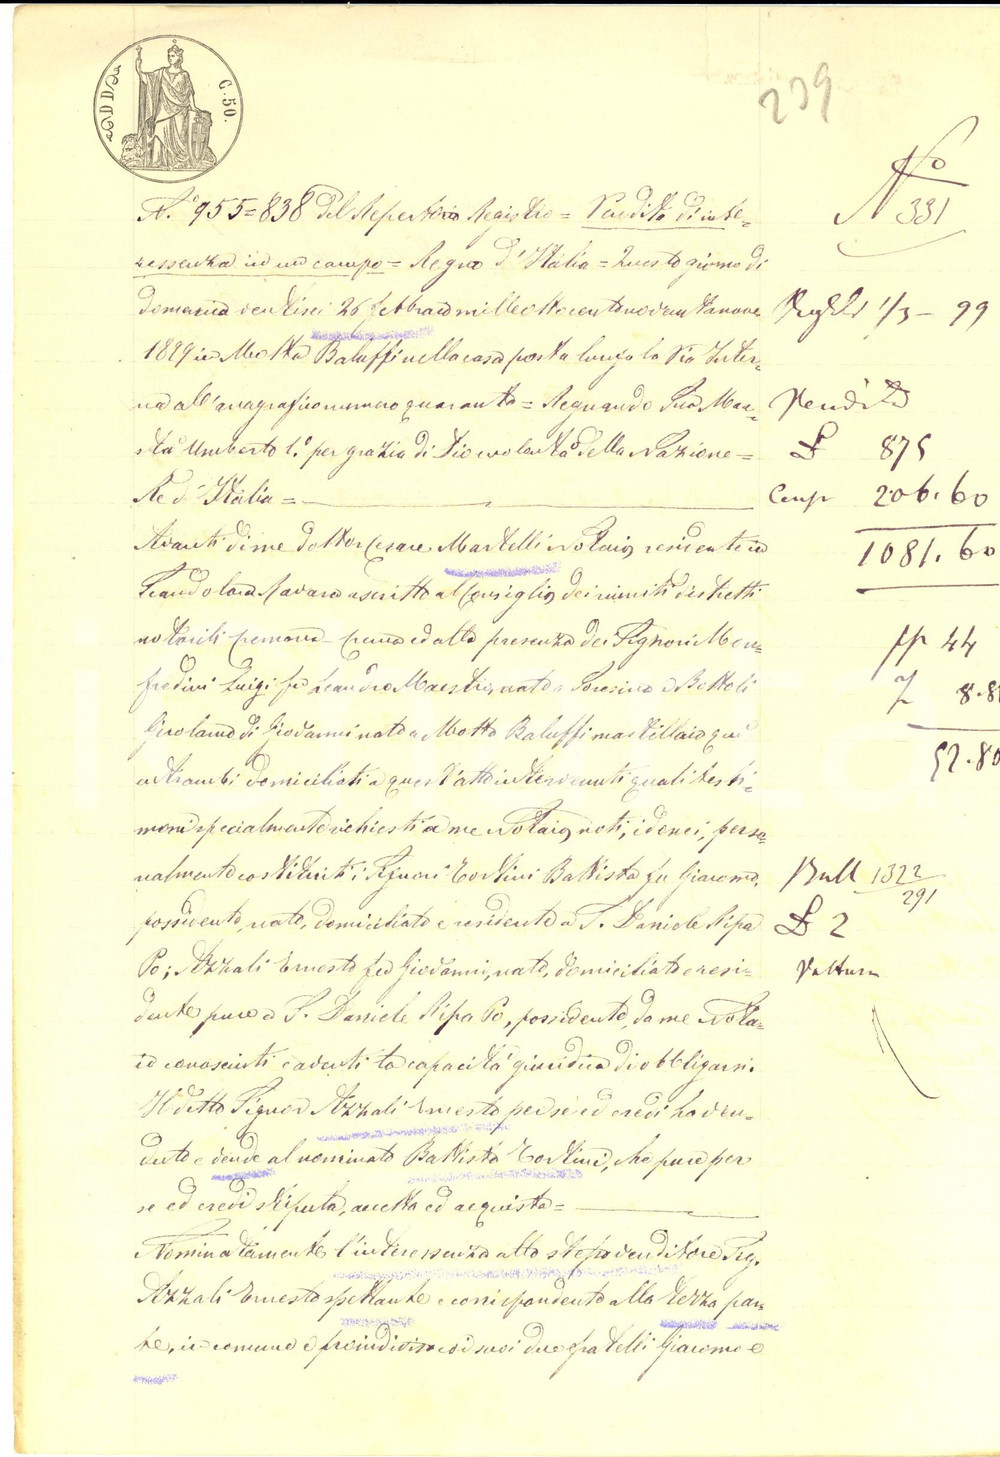 C. 50.
239
N.° 331
N.° 955=838 del Repertorio Registro = Vendita di inte-
ressenza in un campo = Regno d'Italia = Questo giorno di
domenica ventisei 26 febbraio mille ottocentonovantanove
1/3 - 99
1899 in Motta Baluffi nella casa posta lungo la Via Inter-
na all'anagrafico numero quaranta = Regnando Sua Mae-
Vendita
stà Umberto I.° per grazia di Dio e volontà della Nazione =
£ 875
Re d'Italia =
Comp 206.60
1081.60
Avanti di me dottor Cesare Martelli Notaio, residente in
Scandolara Ravara ascritto al Consiglio dei riuniti distretti
notarili Cremona-Crema ed alla presenza dei Signori Man-
pp 44
fredini Luigi fu Leandro Maestro, nato a Soresina e Bottoli
8.8
Girolamo di Giovanni nato a Motta Baluffi martellaio qui
52.80
entrambi domiciliati a quest'atto intervenuti quali testi-
moni specialmente richiesti a me Notaio, noti, idonei, perso-
nalmente costituiti i Signori Tortini Battista fu Giacomo,
Boll 1322
291
possidente, nato, domiciliato e residente a S. Daniele Ripa
£ 2
Po; Azzali Ernesto fu Giovanni, nato, domiciliato e resi-
Voltura
dente pure a S. Daniele Ripa Po, possidente, da me Nota-
io conosciuti e aventi la capacità giuridica di obbligarsi.
Il detto Signor Azzali Ernesto per se ed eredi ha ven-
duto e vende al nominato Battista Tortini, che pure per
se ed eredi stipula, accetta ed acquista =
Nominatamente l'interessenza allo stesso venditore Sig.
Azzali Ernesto spettante e corrispondente alla terza par-
te, in comune e proindiviso coi suoi due fratelli Giacomo e